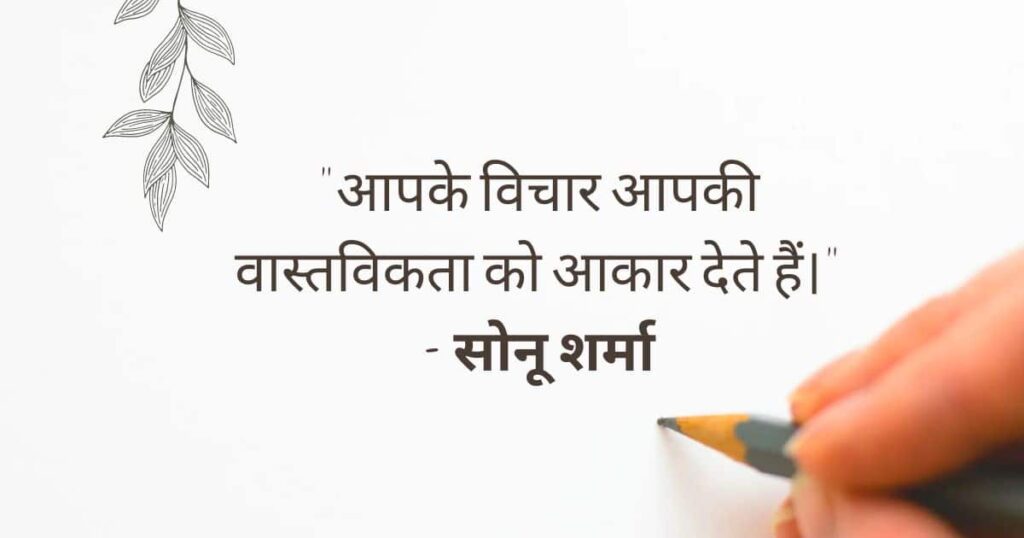 "आपके विचार आपकी
वास्तविकता को आकार देते हैं।"
- सोनू शर्मा